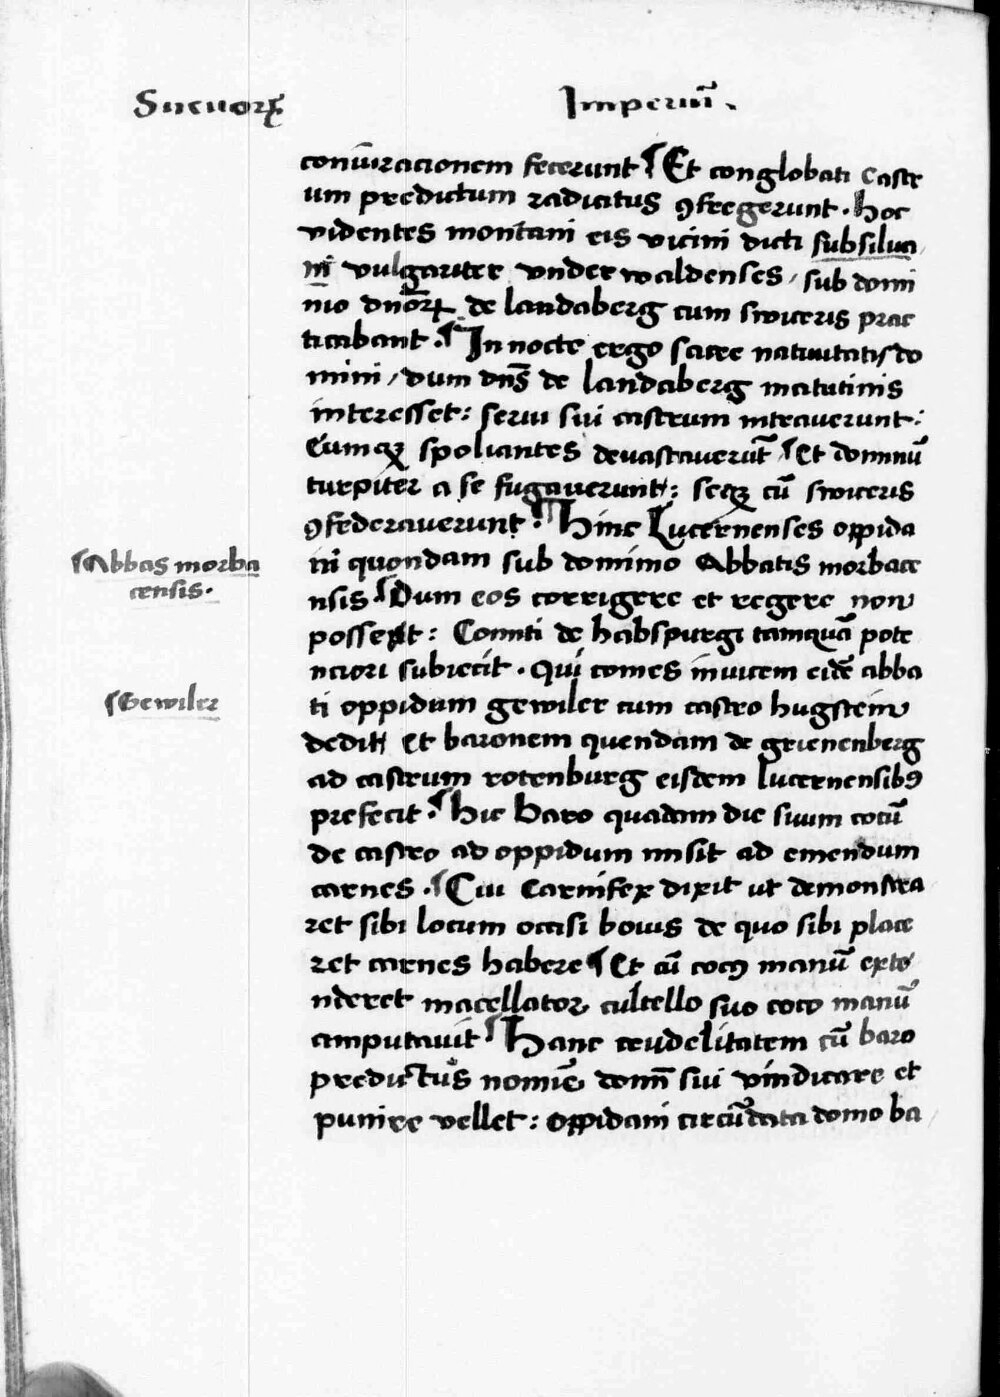 Sueuoꝝ Imperiū.
coniuracionem fecerunt ¶ Et conglobati Castr
um predictum radicitus ꝯfregerunt. Hoc
videntes montani eis vicini dicti subsilua
ni vulgariter vnderwaldenses / sub domi
nio dn̄oꝝ de landaberg cum switeris prac
ticabant. ¶ In nocte ergo sacre natiuitatis do
mini / dum dn̄s de landaberg matutinis
interesset: serui sui castrum intrauerunt:
Eumqꝫ spoliantes deuastauerūt / ¶ Et dominū
turpiter a se fugauerunt: seqꝫ cū switeris
ꝯfederauerunt. ¶ Hinc Lucernenses oppida
ni quondam sub dominio Abbatis morbace
¶ Abbas morba
censis.
nsis ¶ Dum eos corrigere et regere non
possent: Comiti de habspurg tamquā pote
nciori subiecit. Qui comes inuicem eidē abba
¶ Gewiler
ti oppidum gewiler cum castro hugstein
dedit Et baronem quendam de grienenberg
ad castrum rotenburg eisdem lucernensibꝰ
prefecit. ¶ Hic Baro quadam die suum cocū
de castro ad oppidum misit ad emendum
carnes. ¶ Cui Carnifex dixit ut demonstra
ret sibi locum occisi bouis de quo sibi place
ret carnes habere ¶ Et cū cocꝰ manū exte
nderet macellator cultello suo coco manū
amputauit ¶ Hanc crudelitatem cū baro
predictus nomīe domī sui vindicare et
punire vellet: oppidani circūdata domo ba